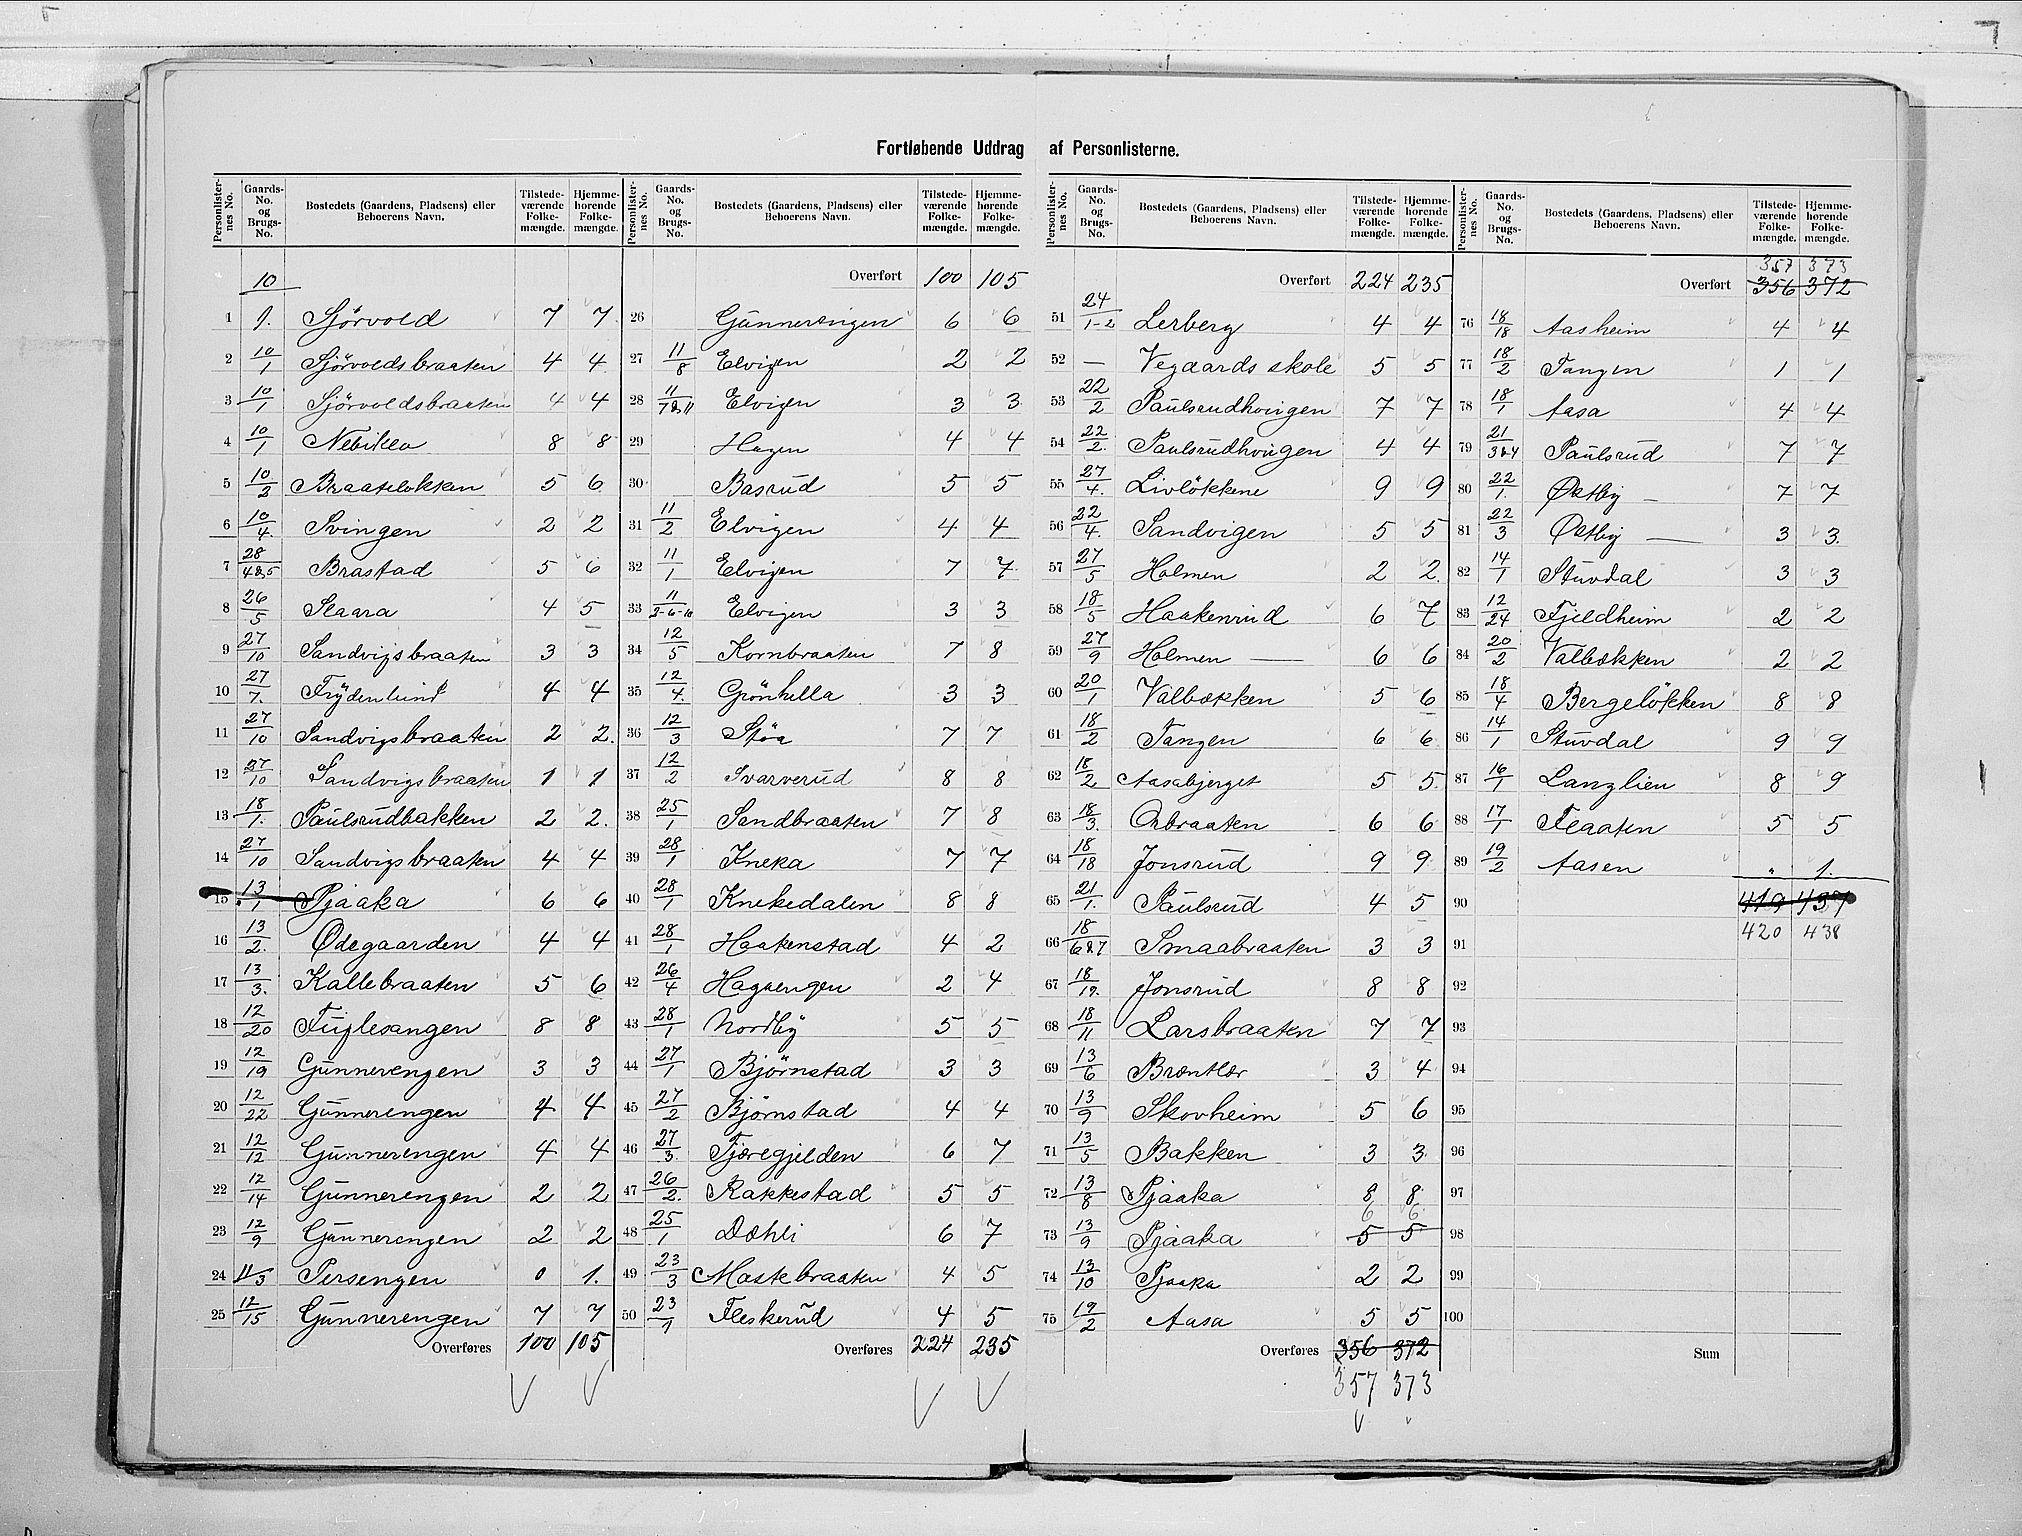 Fortløbende Uddrag af Personlisterne.
Personlisternes No. | Gaards-No. og Brugs-No. | Bostedets (Gaardens, Pladsens) eller Beboerens Navn. | Tilstedeværende Folkemængde. | Hjemmehørende Folkemængde.
10
1 | 1. | Sjörvold | 7 | 7
2 | 10/1 | Sjörvoldsbraaten | 4 | 4
3 | 10/1 | Sjörvoldsbraaten | 4 | 4
4 | 10/1 | Nebikla | 8 | 8
5 | 10/2 | Braatelökken | 5 | 6
6 | 10/4. | Svingen | 2 | 2
7 | 28/4&5 | Brastad | 5 | 6
8 | 26/5 | Slaara | 4 | 5
9 | 27/10 | Sandvigsbraaten | 3 | 3
10 | 27/7. | Frydenlund | 4 | 4
11 | 27/10 | Sandvigsbraaten | 2 | 2.
12 | 27/10 | Sandvigsbraaten | 1 | 1
13 | 18/1. | Paulsrudbakken | 2 | 2.
14 | 27/10 | Sandvigsbraaten | 4 | 4
15 | 13/1 | Pjaaka | 6 | 6
16 | 13/2. | Ødegaarden | 4 | 4
17 | 13/3. | Kallebraaten | 5 | 6
18 | 12/20 | Fuglesangen | 8 | 8
19 | 12/19 | Gunnerengen | 3 | 3
20 | 12/22 | Gunnerengen | 4 | 4
21 | 12/12 | Gunnerengen | 4 | 4
22 | 12/14 | Gunnerengen | 2 | 2
23 | 12/9 | Gunnerengen | 2 | 2
24 | 11/3 | Persengen | 0 | 1.
25 | 12/15 | Gunnerengen | 7 | 7
Overføres 100 105
Personlisternes No. | Gaards-No. og Brugs-No. | Bostedets (Gaardens, Pladsens) eller Beboerens Navn. | Tilstedeværende Folkemængde. | Hjemmehørende Folkemængde.
Overført 100 105
26 | Gunnerengen | 6 | 6
27 | 11/8 | Elvigen | 2 | 2
28 | 11/7&11 | Elvigen | 3 | 3
29 | Hagen | 4 | 4
30 | Basrud | 5 | 5
31 | 11/2 | Elvigen | 4 | 4
32 | 11/1 | Elvigen | 7 | 7
33 | 11/2-6-10 | Elvigen | 3 | 3
34 | 12/5 | Kornbraaten | 7 | 8
35 | 12/4. | Grönhella | 3 | 3
36 | 12/3 | Stöa | 7 | 7
37 | 12/2 | Svarverud | 8 | 8
38 | 25/1 | Sandbraaten | 7 | 8
39 | 28/1 | Kneka | 7 | 7
40 | 28/1 | Knekedalen | 8 | 8
41 | 28/1 | Haakenstad | 4 | 2
42 | 26/4 | Hagaengen | 2 | 4
43 | 28/1 | Nordby | 5 | 5
44 | 27/1 | Björnstad | 3 | 3
45 | 27/2 | Björnstad | 4 | 4
46 | 27/3. | Fjæregjelden | 6 | 7
47 | 26/2. | Rakkestad | 5 | 5
48 | 25/1 | Dæhli | 6 | 7
49 | 23/3 | Mastebraaten | 4 | 5
50 | 23/1 | Fleskerud | 4 | 5
Overføres 224 235
Personlisternes No. | Gaards-No. og Brugs-No. | Bostedets (Gaardens, Pladsens) eller Beboerens Navn. | Tilstedeværende Folkemængde. | Hjemmehørende Folkemængde.
Overført 224 235
51 | 24/1-2 | Lerberg | 4 | 4
52 | — | Vegaards skole | 5 | 5
53 | 22/2 | Paulsrudhvingen | 7 | 7
54 | 22/2. | Paulsrudhvingen | 4 | 4
55 | 27/4. | Livlökkene | 9 | 9
56 | 22/4. | Sandvigen | 5 | 5
57 | 27/5 | Holmen | 2 | 2.
58 | 18/5 | Haakenrud | 6 | 7
59 | 27/9 | Holmen — | 6 | 6
60 | 20/1 | Valbækken | 5 | 6
61 | 18/2 | Tangen | 6 | 6
62 | 18/2 | Aasabjerget | 5 | 5
63 | 18/3. | Oxbraaten | 6 | 6
64 | 18/18 | Jonsrud | 9 | 9
65 | 21/1. | Paulsrud | 4 | 5
66 | 18/6&7 | Smaabraaten | 3 | 3
67 | 18/12. | Jonsrud | 8 | 8
68 | 18/11 | Larsbraaten | 7 | 7
69 | 13/6 | Bræntlær | 3 | 4
70 | 13/9 | Skovheim | 5 | 6
71 | 13/5 | Bakken | 3 | 3
72 | 13/8 | Pjaaka | 8 | 8
6 6
73 | 13/9 | Pjaaka | 5 | 5
74 | 13/10 | Pjaaka | 2 | 2
75 | 19/2 | Aasa | 5 | 5
Overføres 356 372
357 373
Personlisternes No. | Gaards-No. og Brugs-No. | Bostedets (Gaardens, Pladsens) eller Beboerens Navn. | Tilstedeværende Folkemængde. | Hjemmehørende Folkemængde.
357 373
Overført 356 372
76 | 18/18 | Aasheim | 4 | 4
77 | 18/2 | Tangen | 1 | 1
78 | 18/1 | Aasa | 4 | 4
79 | 21/3&4 | Paulsrud | 7 | 7
80 | 22/1. | Østby — | 7 | 7
81 | 22/3 | Østby — | 3 | 3.
82 | 14/1 | Stuvdal | 3 | 3
83 | 12/24 | Fjeldheim | 2 | 2
84 | 20/2 | Valbækken | 2 | 2
85 | 18/4 | Bergelökken | 8 | 8
86 | 14/1 | Stuvdal | 9 | 9
87 | 16/1 | Langlien | 8 | 9
88 | 17/1 | Flaaten | 5 | 5
89 | 19/2 | Aasen | " | 1.
90 | 419 | 437
91 | 420 | 438
92
93
94
95
96
97
98
99
100
Sum